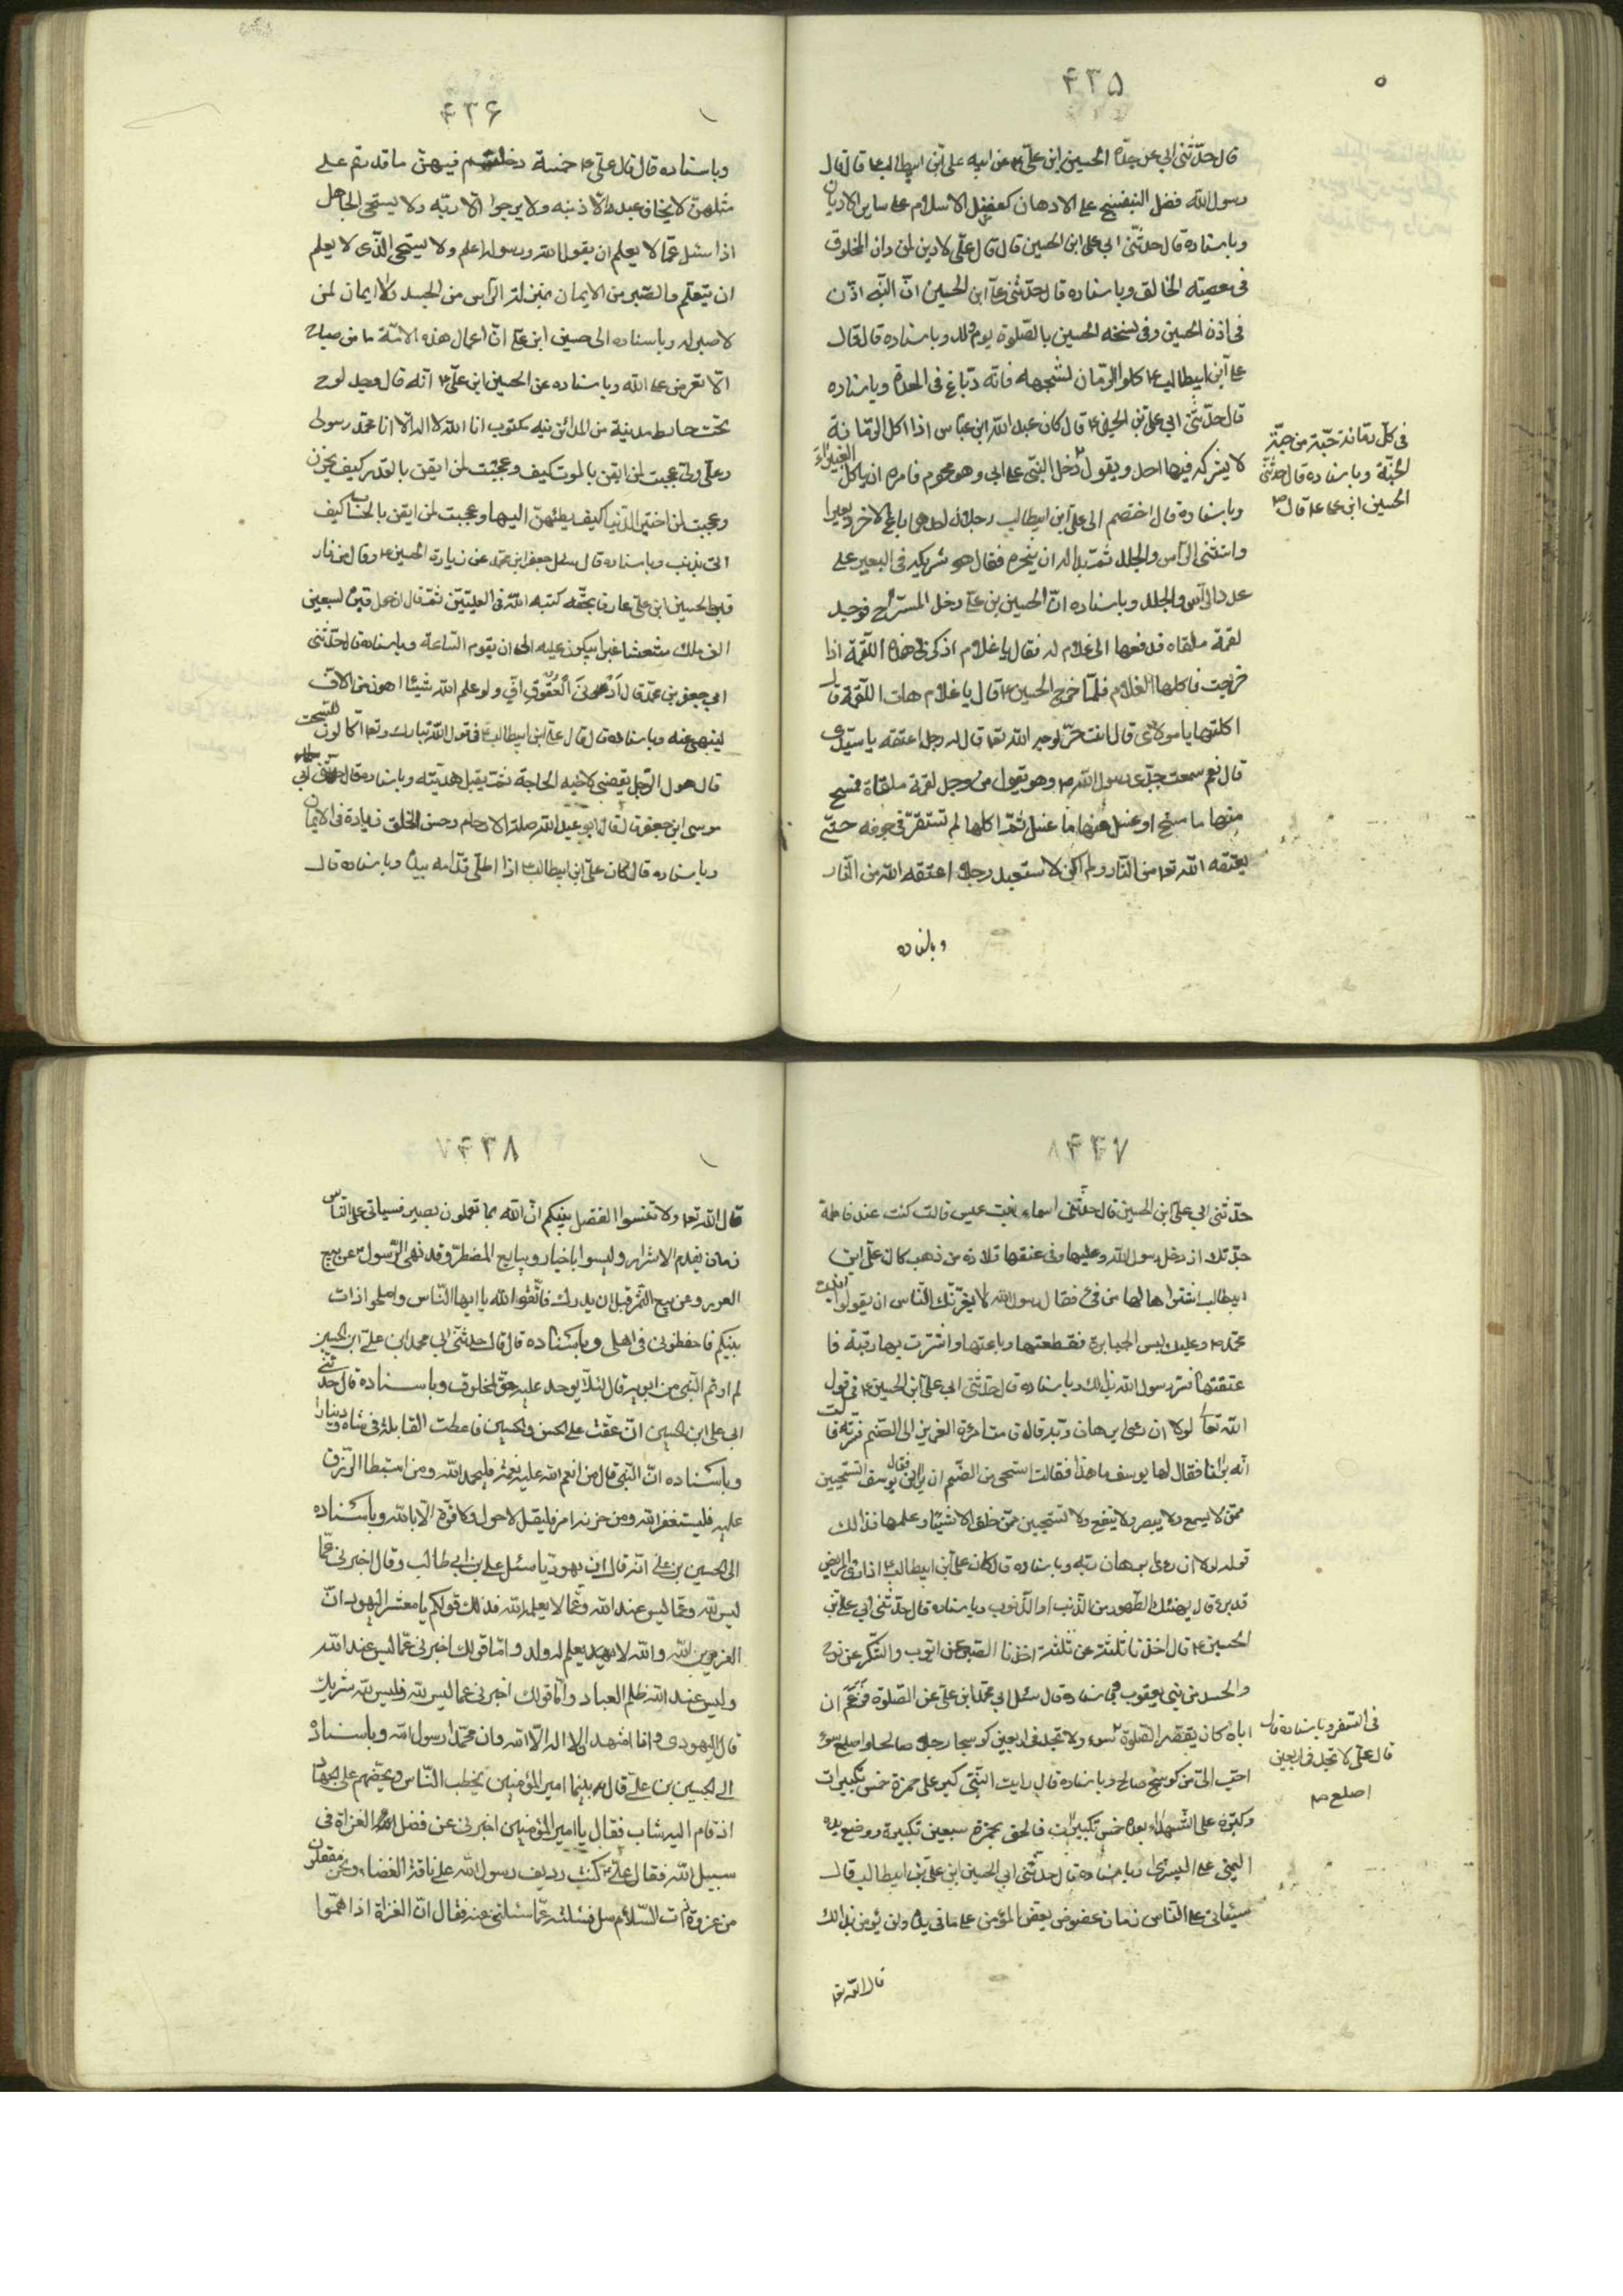 ۴۳۵
قال حدّثنى ابى عن جدّه الحسين ابن علىّ ۴ عن ابيه على بن ابيطالب ۴ قال قال
رسول الله فضل البنفسج على الادهان كفضل الاسلام على ساير الاديان
وباسناده قال حدثّنى ابى على ابن الحسين قال قال علّى لا دين لمن دان المخلوق
فى معصيته الخالق وباسناده قال حدّثنى على ابن الحسين انّ النبّى اذّن
فى اذن الحسين وفى نسخه الحسين بالصّلوة يوم ولد وباسناده قال قال
على ابن ابيطالب ۴ كلوا الرّمان بشحمه فانّه دبّاغ فى المعدة وباسناده
قال حدّثنى ابى علىّ بن الحسين ۴ قال كان عبد الله ابن عبّاس اذا اكل الرمّانة
لا يشركه فيها احد ويقول دخل النبّى على ابى وهو محموم فامره ان ياكل الغبيراء
وباسناده قال اختصم الى علىّ ابن ابيطالب رجلان احدهما باع الاخر بعيرا
واستثنى الراس والجلد ثمّ بدا له ان ينحره فقال هو شريكه فى البعير على
عدد الرّاس والجلد وباسناده انّ الحسين بن علىّ دخل المستراح فوجد
لقمة ملقاه فدفعها الى غلام له فقال يا غلام اذكرنى هذه اللقّمة اذا
خرجت فاكلها الغلام فلمّا خرج الحسين ۴ قال يا غلام هات اللقمة قال
اكلتها يا مولاى قال انت حرّ لوجه الله تعا قال له رجل اعتقته يا سيّدى
قال نعم سمعت جدّى رسول الله ص وهو يقول من وجد لقمة ملقاة فمسح
منها ما مسح او غسل منها ما غسل ثمّ اكلها لم تستقرّ فى جوفه حتّى
يعتقه الله تعا من النّار ولم اكن لاستعبد رجلا اعتقه الله من النّار
وباسناده
فى كلّ رمّانة حبّة من حبّ
الجنّة وباسناده قال حدّثنى
الحسين ابن على ۴ قال
۴۳۶
وباسناده قال قال علىّ ۴ خمسة فيهن ما قدرتم على
مثلهنّ لا يخاف عبد الّا ذنبه ولا يرجوا الّا ربّه ولا يستحى الجاهل
اذا سئل عمّا لا يعلم ان يقول الله ورسوله اعلم ولا يستحى الّذى لا يعلم
ان يتعلّم والصّبر من الايمان بمنزلة الرّاس من الجسد ولا ايمان لمن
لا صبر له وباسناده الى حسين ابن علىّ انّ اعمال هذه الامّة ما من صباح
الّا تعرض على الله وباسناده عن الحسين ابن علىّ ۴ انّه قال وجد لوح
تحت حايط مدينة من المدائن فيه مكتوب انا الله لا اله الّا انا محمّد رسولى
وعلى ولىّ عجبت لمن ايقن بالموت كيف وعجبت لمن ايقن بالقدر كيف يحزن
وعجبت لمن اختبر الدّنيا كيف يطمئنّ اليها وعجبت لمن ايقن بالحساب كيف
يذنب وباسناده قال سئل جعفر ابن محمّد عن زيارة الحسين ۴ وقال من زار
قبر الحسين ابن علىّ عارفا بحقّه كتبه الله فى العليّين ثمّ قال ان حول قبره لسبعين
الف ملك شعثا غبرا يبكون عليه الى ان يقوم السّاعة وباسناده قال حدّثنى
ابى جعفر بن محمّد قال ادنى العقوق افّ ولو علم الله شيئا اهون من الافّ
لينهى عنه وباسناده قال قال علىّ ابن ابيطالب ۴ فى قول الله تبارك وتعا اكّالون للسّحت
قال هو الرّجل يقضى لاخيه الحاجة ثمّ يقبل هديّته وباسناده قال حدّثنى ابى
موسى ابن جعفر قال قال ابو عبد الله صلة الارحام وحسن الخلق زيادة فى الايمان
وباسناده قال كان على ابن ابيطالب ۴ اذا وباسناده قال
۴۳۷
حدّثنى ابى علىّ ابن الحسين قال حدّثتنى اسماء بنت عميس قالت كنت عند فاطمة
جدّتك اذ دخل رسول الله وعليها وفى عنقها قلادة من ذهب كان علىّ ابن
ابيطالب اشتراها لها من فىء فقال رسول الله لا يغرّنّك الناس ان يقولوا ابنت
محمّد ۴ وعليك لبس الجبابرة فقطعتها وباعتها واشترت بها رقبة فا
عتقتها فسرّ رسول الله بذلك وباسناده قال حدّثنى ابى علىّ ابن الحسين ۴ فى قول
الله تعا لولا ان رءى برهان ربّه قال قامت امرئة العزيز الى الصّنم فسترته قالت
انّه يرانا فقال لها يوسف ما هذا فقالت استحى من الصّنم ان يرانى فقال يوسف اتستحيين
ممّن لا يسمع ولا يبصر ولا ينفع ولا تستحيين ممّن خلق الاشيآء وعلمها فذالك
قوله لولا ان رءى برهان ربّه وباسناده قال كان علىّ ابن ابيطالب ۴ اذا راى المريض
قد برء قال يهنئك الطّهور من الذّنب او الذّنوب وباسناده قال حدّثنى ابى علىّ بن
الحسين ۴ قال اخذنا ثلثة عن ثلثة اخذنا الصّبر عن ايّوب والشّكر عن نوح
والحسد من بنى يعقوب وباسناده قال سئل ابى محمّد ابن علىّ عن الصّلوة فزعم ان
اباه كان يقصّر الصّلوة ولا تجد فى اربعين كوسجا رجلا صالحا واصلع سوء
احبّ الىّ من كوسج صالح وباسناده قال رايت النّبّى كبّر على حمزة خمس تكبيرات
وكبّر على الشّهداء بعده خمس تكبيرات فالحق بحمزة سبعين تكبيرة ووضع يده
اليمنى على اليسرى وباسناده قال حدّثنى ابى الحسين ابن علىّ بن ابيطالب قال
سيئاتى على النّاس زمان عضوض يعضّ المؤمن على ما فى يده ولن يؤمن بذالك
قال الله تعا
فى السّفر وباسناده قال
قال علىّ لا تجد فى اربعين
اصلع
۴۳۸
قال الله تعا ولا تنسوا الفضل بينكم انّ الله بما تعملون بصير فسياتى على النّاس
زمان يقدم الاشرار وليسوا باخيار ويبايع المضطرّ وقد نهى الرّسول عن بيع
الغرر وعن بيع الثّمر قبل ان يدرك فاتّقوا الله يا ايها النّاس واصلحوا ذات
بينكم فاحفظونى فى اهلى وباسناده قال قال حدّثنى ابى محمد ابن علىّ ابن الحسين
لم اوتم النّبى من ابويه قال لئلّا يوجد عليه حقّ لمخلوق وباسناده قال حدّثنى
ابى على ابن الحسين انّ عقّت على الحسن والحسين فاعطت القابلة فخذ شاة ودينارا
وباسناده انّ النّبى قال من انعم الله عليه نعمة فليحمد الله ومن استبطا الرّزق
عليه فليستغفر الله ومن حزنه امر فليقل لا حول ولا قوّة الّا بالله وباسناده
الى الحسين بن على انّه قال انّ يهوديّا سئل على بن ابى طالب وقال اخبرنى عمّا
ليس لله وعمّا ليس عند الله وعمّا لا يعلمه الله فذلك قولكم يا معشر اليهود انّ
العزير بن الله والله لا يعلم له ولد وامّا قولك اخبرنى عمّا ليس عند الله
وليس عند الله ظلم العباد وامّا قولك اخبرنى عمّا ليس لله فليس لله شريك
قال اليهودى وانا اشهد ان لا اله الّا الله وانّ محمّدا رسول الله وباسناده
الى الحسين بن علىّ قال بينما امير المؤمنين يخطب النّاس ويحضّهم على الجهاد
اذ قام اليه شاب فقال يا امير المؤمنين اخبرنى عن فضل الغزاة فى
سبيل الله فقال علىّ ۴ كنت رديف رسول الله على ناقته الغضباء ونحن مقفلون
من غزوة ذات السّلاسل فسئلته عمّا سئلتنى عنه فقال انّ الغزاة اذا همّوا